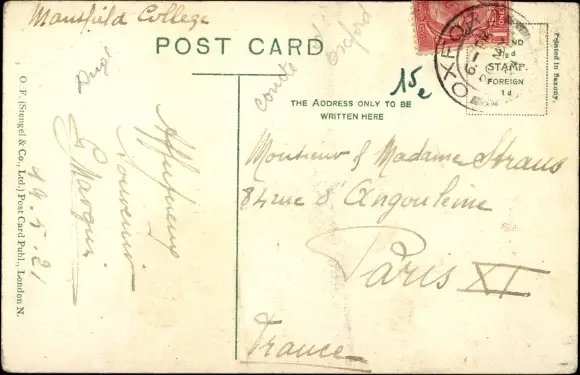 Mansfield College
POST CARD
Angl
comté Oxford
15e
OXFO
ND
½d
STAMP.
FOREIGN
1d
Printed in Saxony.
THE ADDRESS ONLY TO BE
WRITTEN HERE
Affectueux
souvenir
Marquis
19.5.21
O. F. (Stengel & Co., Ltd.) Post Card Publ., London N.
Monsieur & Madame Straus
84 rue d'Angoulême
Paris XI
France